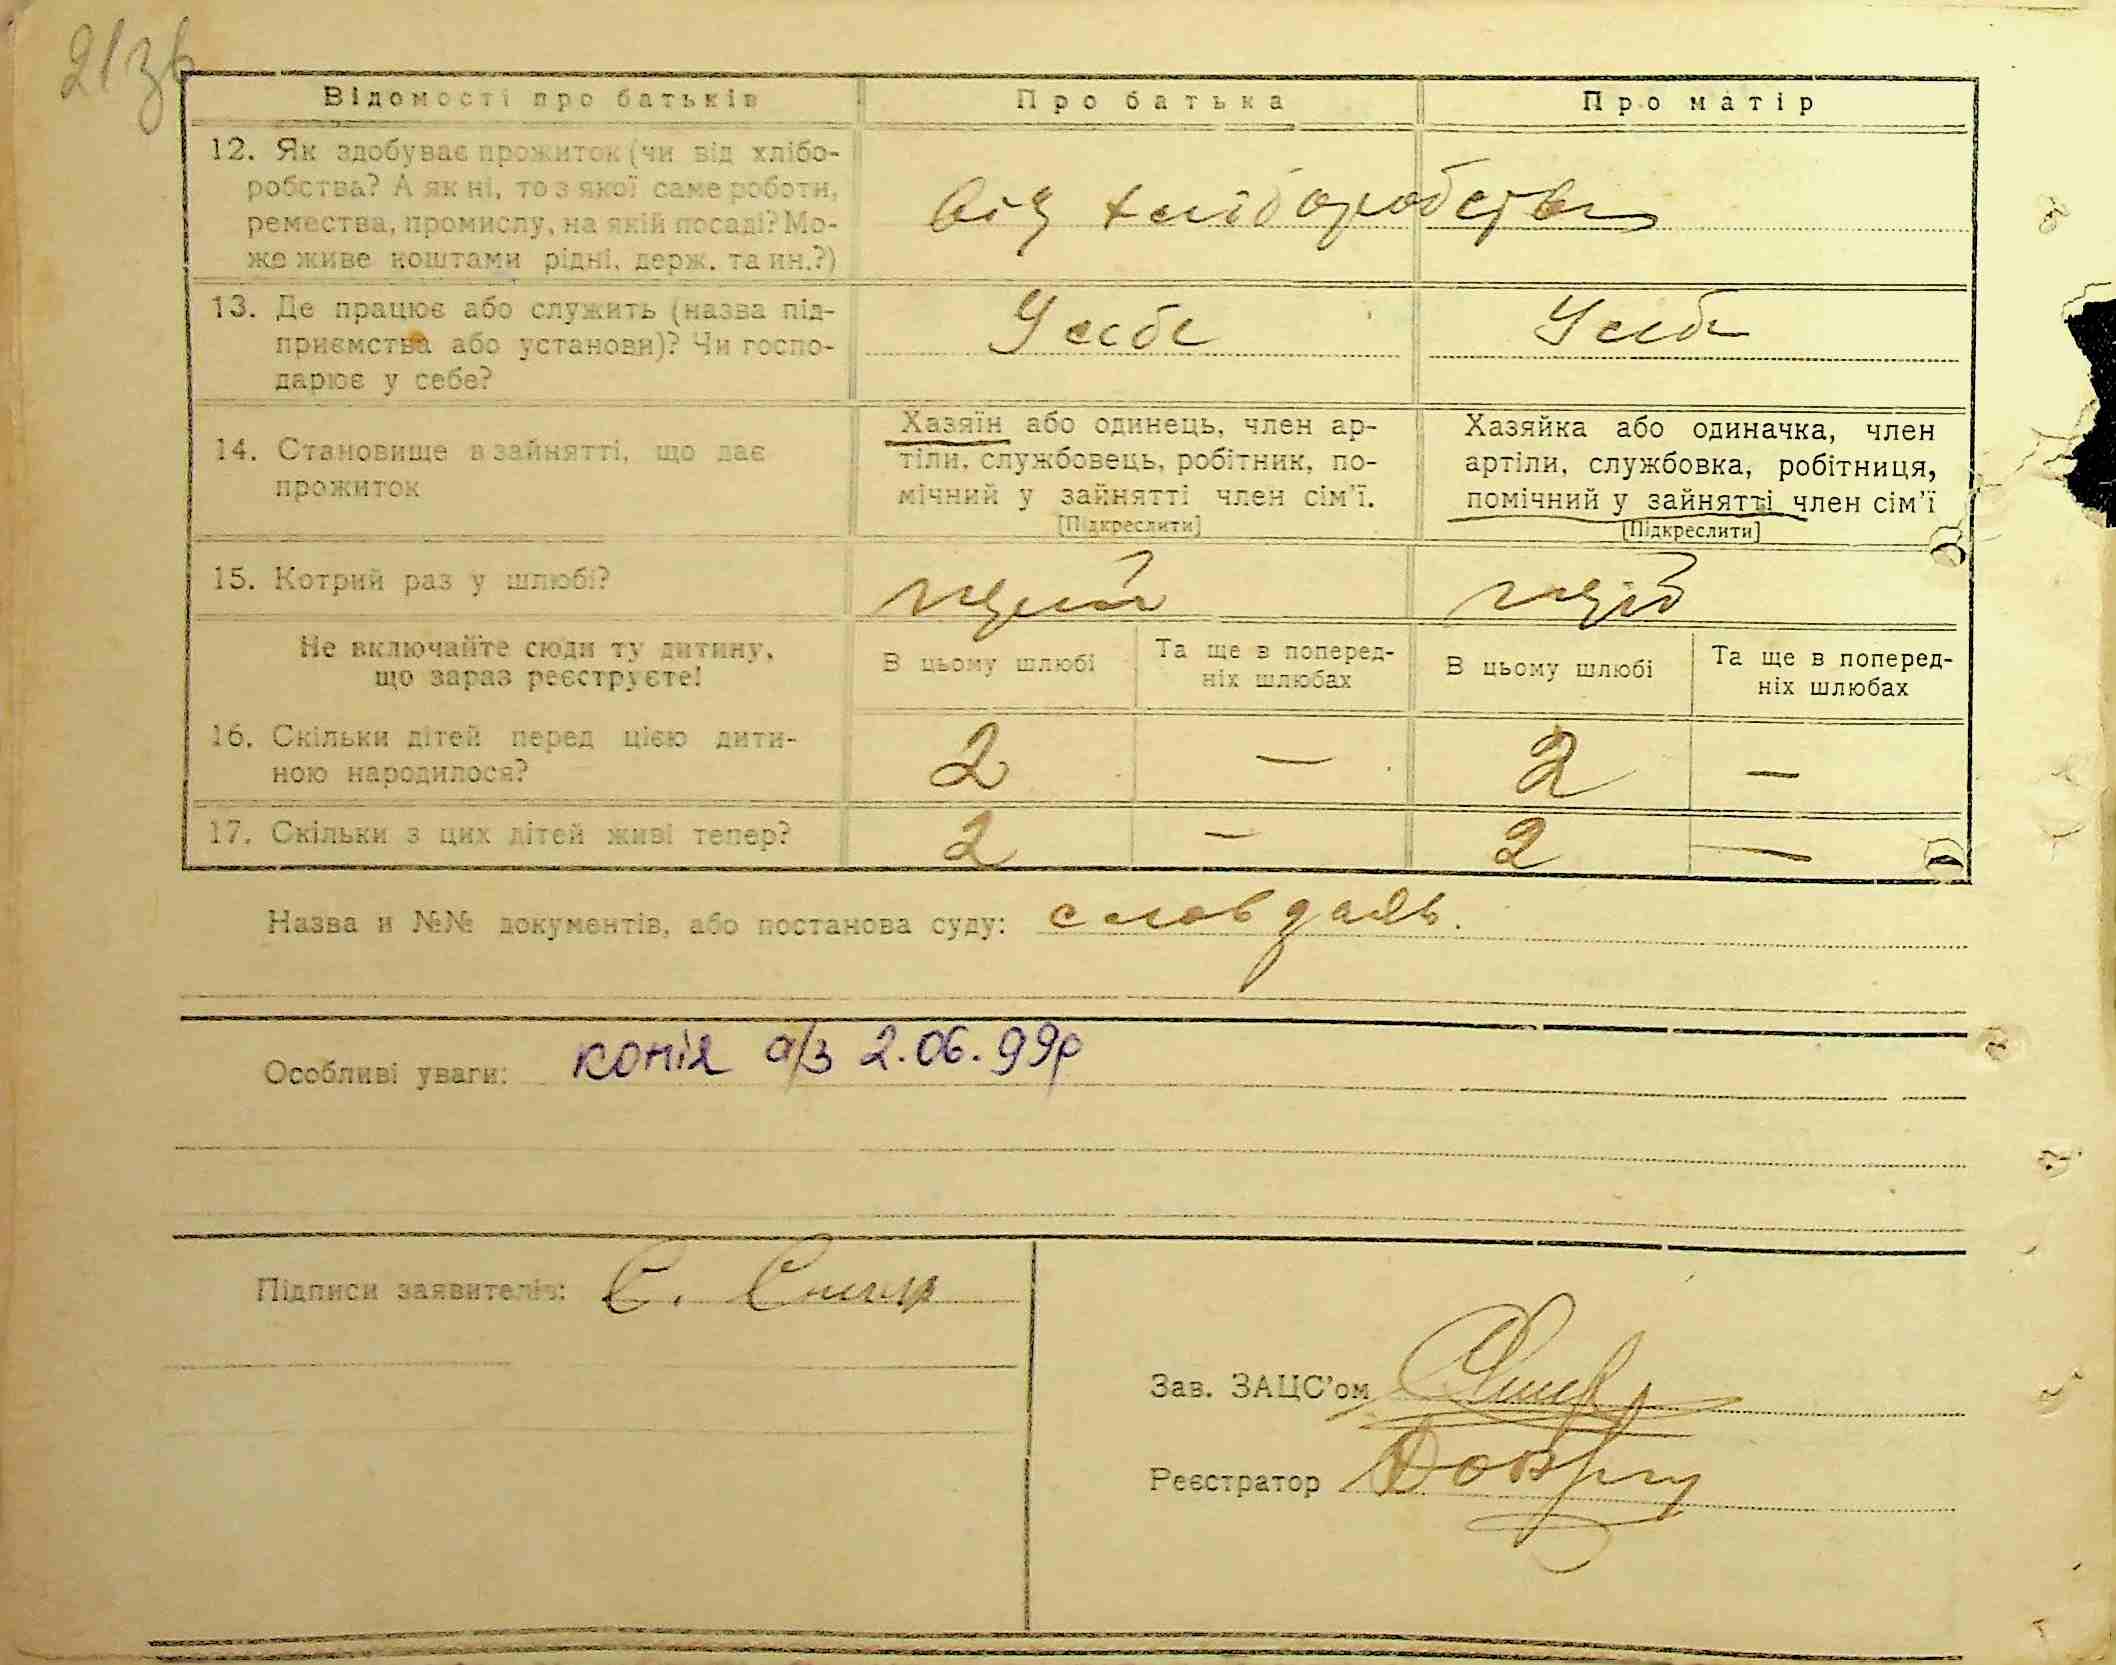 21зв
Відомості про батьків Про батька Про матір
12. Як здобуває прожиток (чи від хлібо-
робства? А як ні, то з якої саме роботи,
ремества, промислу, на якій посаді? Мо-
же живе коштами рідні, держ. та ин.?)
від хліборобства
13. Де працює або служить (назва під-
приємства або установи)? Чи госпо-
дарює у себе?
У себе У себе
14. Становище в зайнятті, що дає
прожиток
Хазяїн або одинець, член ар-
тіли, службовець, робітник, по-
мічний у зайнятті член сім'ї.
[Підкреслити]
Хазяйка або одиначка, член
артіли, службовка, робітниця,
помічний у зайнятті член сім'ї
[Підкреслити]
15. Котрий раз у шлюбі?
Не включайте сюди ту дитину,
що зараз реєструєте!
В цьому шлюбі
Та ще в поперед-
ніх шлюбах
В цьому шлюбі
Та ще в поперед-
ніх шлюбах
16. Скільки дітей перед цією дити-
ною народилося?
2 — 2 —
17. Скільки з цих дітей живі тепер?
2 — 2 —
Назва и №№ документів, або постанова суду:
Особливі уваги: копія а/з 2.06.99р
Підписи заявителів: С.
Зав. ЗАЦС'ом
Реєстратор